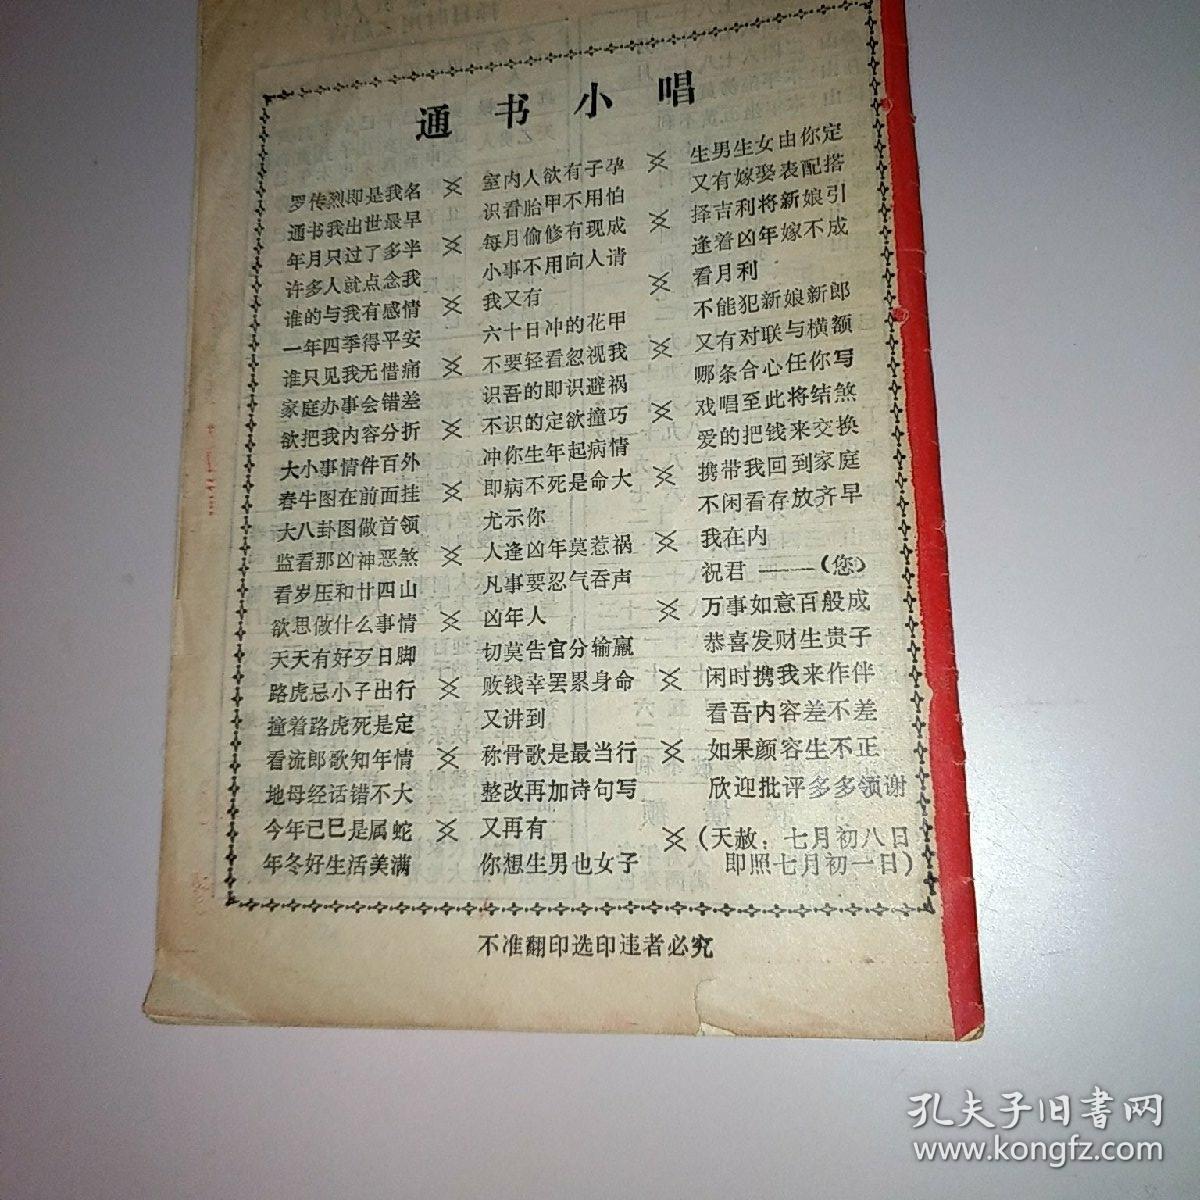 通书小唱
罗传烈即是我名
通书我出世最早
年月只过了多半
许多人就点念我
谁的与我有感情
一年四季得平安
谁只见我无惜痛
家庭办事会错差
欲把我内容分折
大小事情件百外
春牛图在前面挂
大八卦图做首领
监看那凶神恶煞
看岁压和廿四山
欲思做什么事情
天天有好歹日脚
路虎忌小子出行
撞着路虎死是定
看流郎歌知年情
地母经话错不大
今年己巳是属蛇
年冬好生活美满
室内人欲有子孕
识看胎甲不用怕
每月偷修有现成
小事不用向人请
我又有
六十日冲的花甲
不要轻看忽视我
识吾的即识避祸
不识的定欲撞巧
冲你生年起病情
即病不死是命大
尤示你
人逢凶年莫惹祸
凡事要忍气吞声
凶年人
切莫告官分输赢
败钱幸罢累身命
又讲到
称骨歌是最当行
整改再加诗句写
又再有
你想生男也女子
生男生女由你定
又有嫁娶表配搭
择吉利将新娘引
逢着凶年嫁不成
看月利
不能犯新娘新郎
又有对联与横额
哪条合心任你写
戏唱至此将结煞
爱的把钱来交换
携带我回到家庭
不闲看存放齐早
我在内
祝君——(您)
万事如意百般成
恭喜发财生贵子
闲时携我来作伴
看吾内容差不差
如果颜容生不正
欣迎批评多多领谢
(天赦：七月初八日
即照七月初一日)
不准翻印选印违者必究
孔夫子旧书网
www.kongfz.com